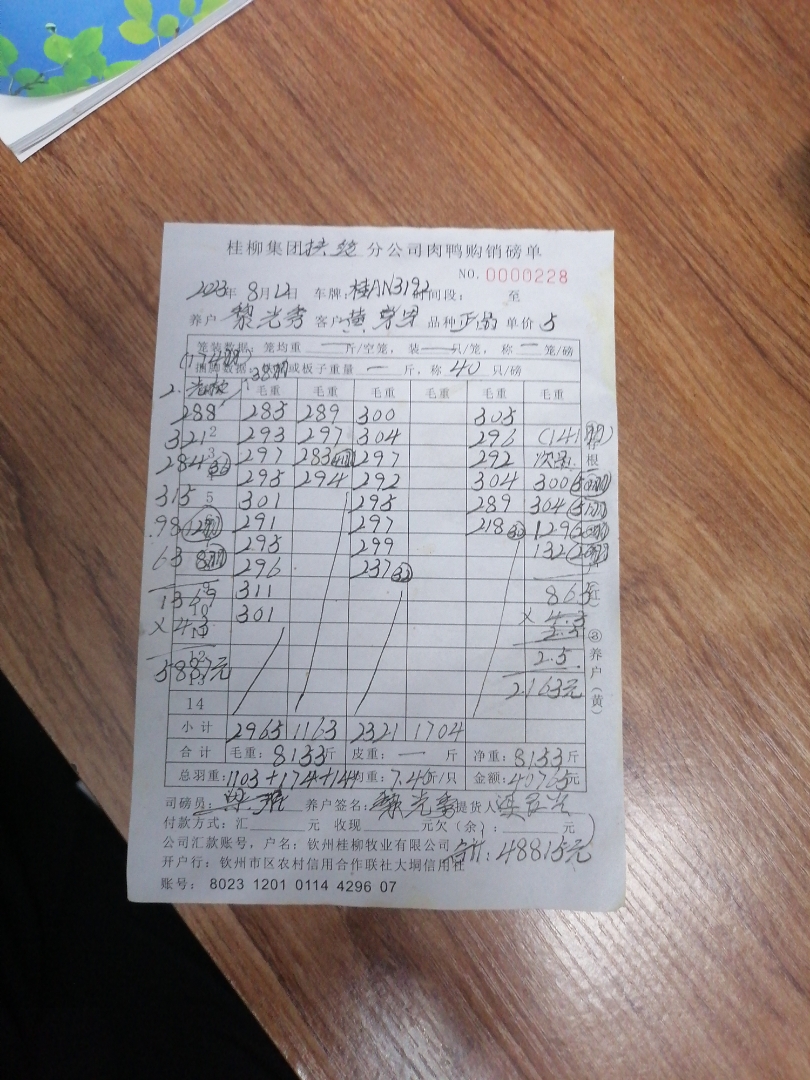 桂柳集团扶绥分公司肉鸭购销磅单
NO. 0000228
2023年 8月12日 车牌:桂AN3192 时间段: 至
养户 黎光秀 客户 黄 品种 正品 单价 5
笼装数据: 笼均重 一 斤/空笼, 装 一 只/笼, 称 一 笼/磅
(174羽) 或板子重量 一 斤, 称 40 只/磅
毛重 毛重 毛重 毛重 毛重 毛重
288 285 289 300 305
321 2 293 297 304 296 (141羽)
284 3 297 283 297 292 次品 根
295 294 292 304 300
315 5 301 295 289 304
98 291 297 218 129
63 295 299 132
296 237
1369 311 863
10 301 × 4.3
× 4.3 11 2.5 ③
12 2.5 养
5887元 13 2163元 户
14 (黄)
小计 2965 1163 2321 1704
合计 毛重: 8153斤 皮重: 一 斤 净重: 8153斤
总羽重: 1103+174+141 均重: 7.4斤/只 金额: 40765元
司磅员: 养户签名: 黎光秀 提货人
付款方式: 汇 元 收现 元欠(余): 元
公司汇款账号, 户名: 钦州桂柳牧业有限公司 合计: 48815元
开户行: 钦州市区农村信用合作联社大垌信用社
账号: 8023 1201 0114 4296 07